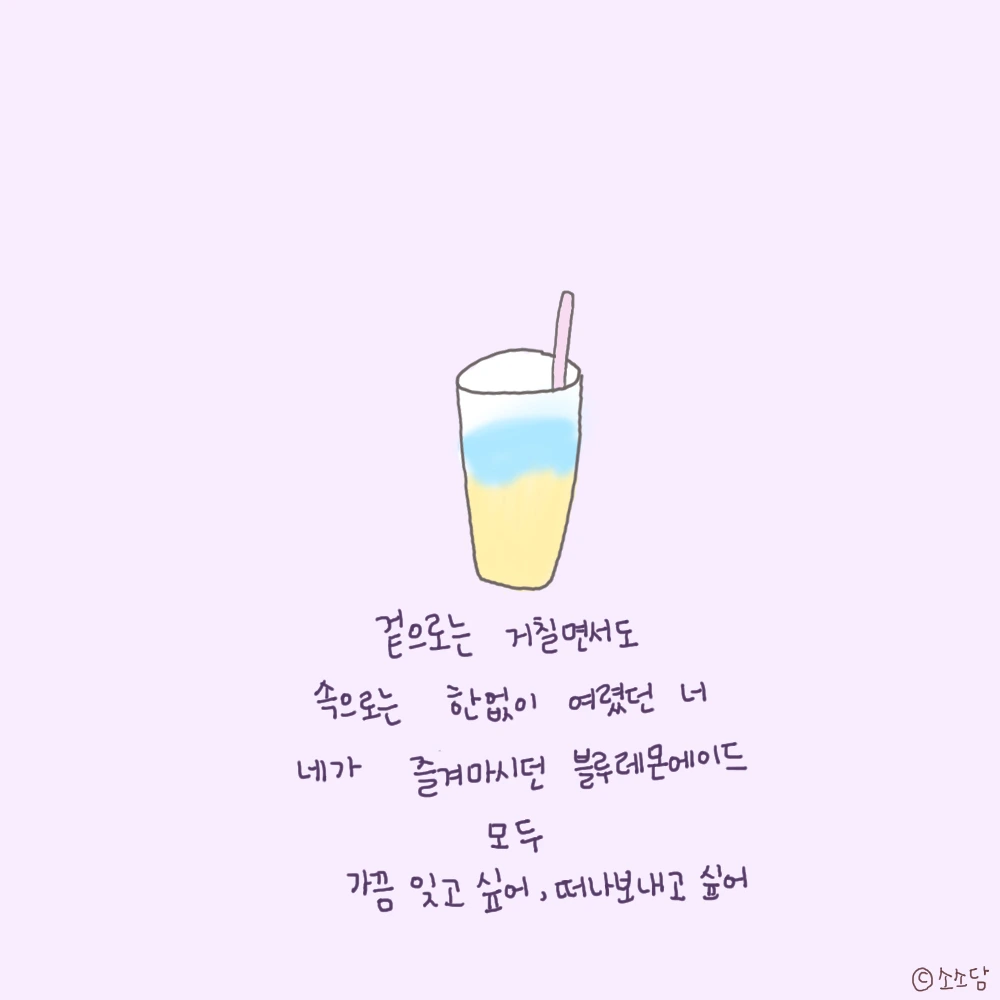 겉으로는 거칠면서도
속으로는 한없이 여렸던 너
네가 즐겨마시던 블루레몬에이드
모두
가끔 잊고 싶어, 떠나보내고 싶어
©소소담